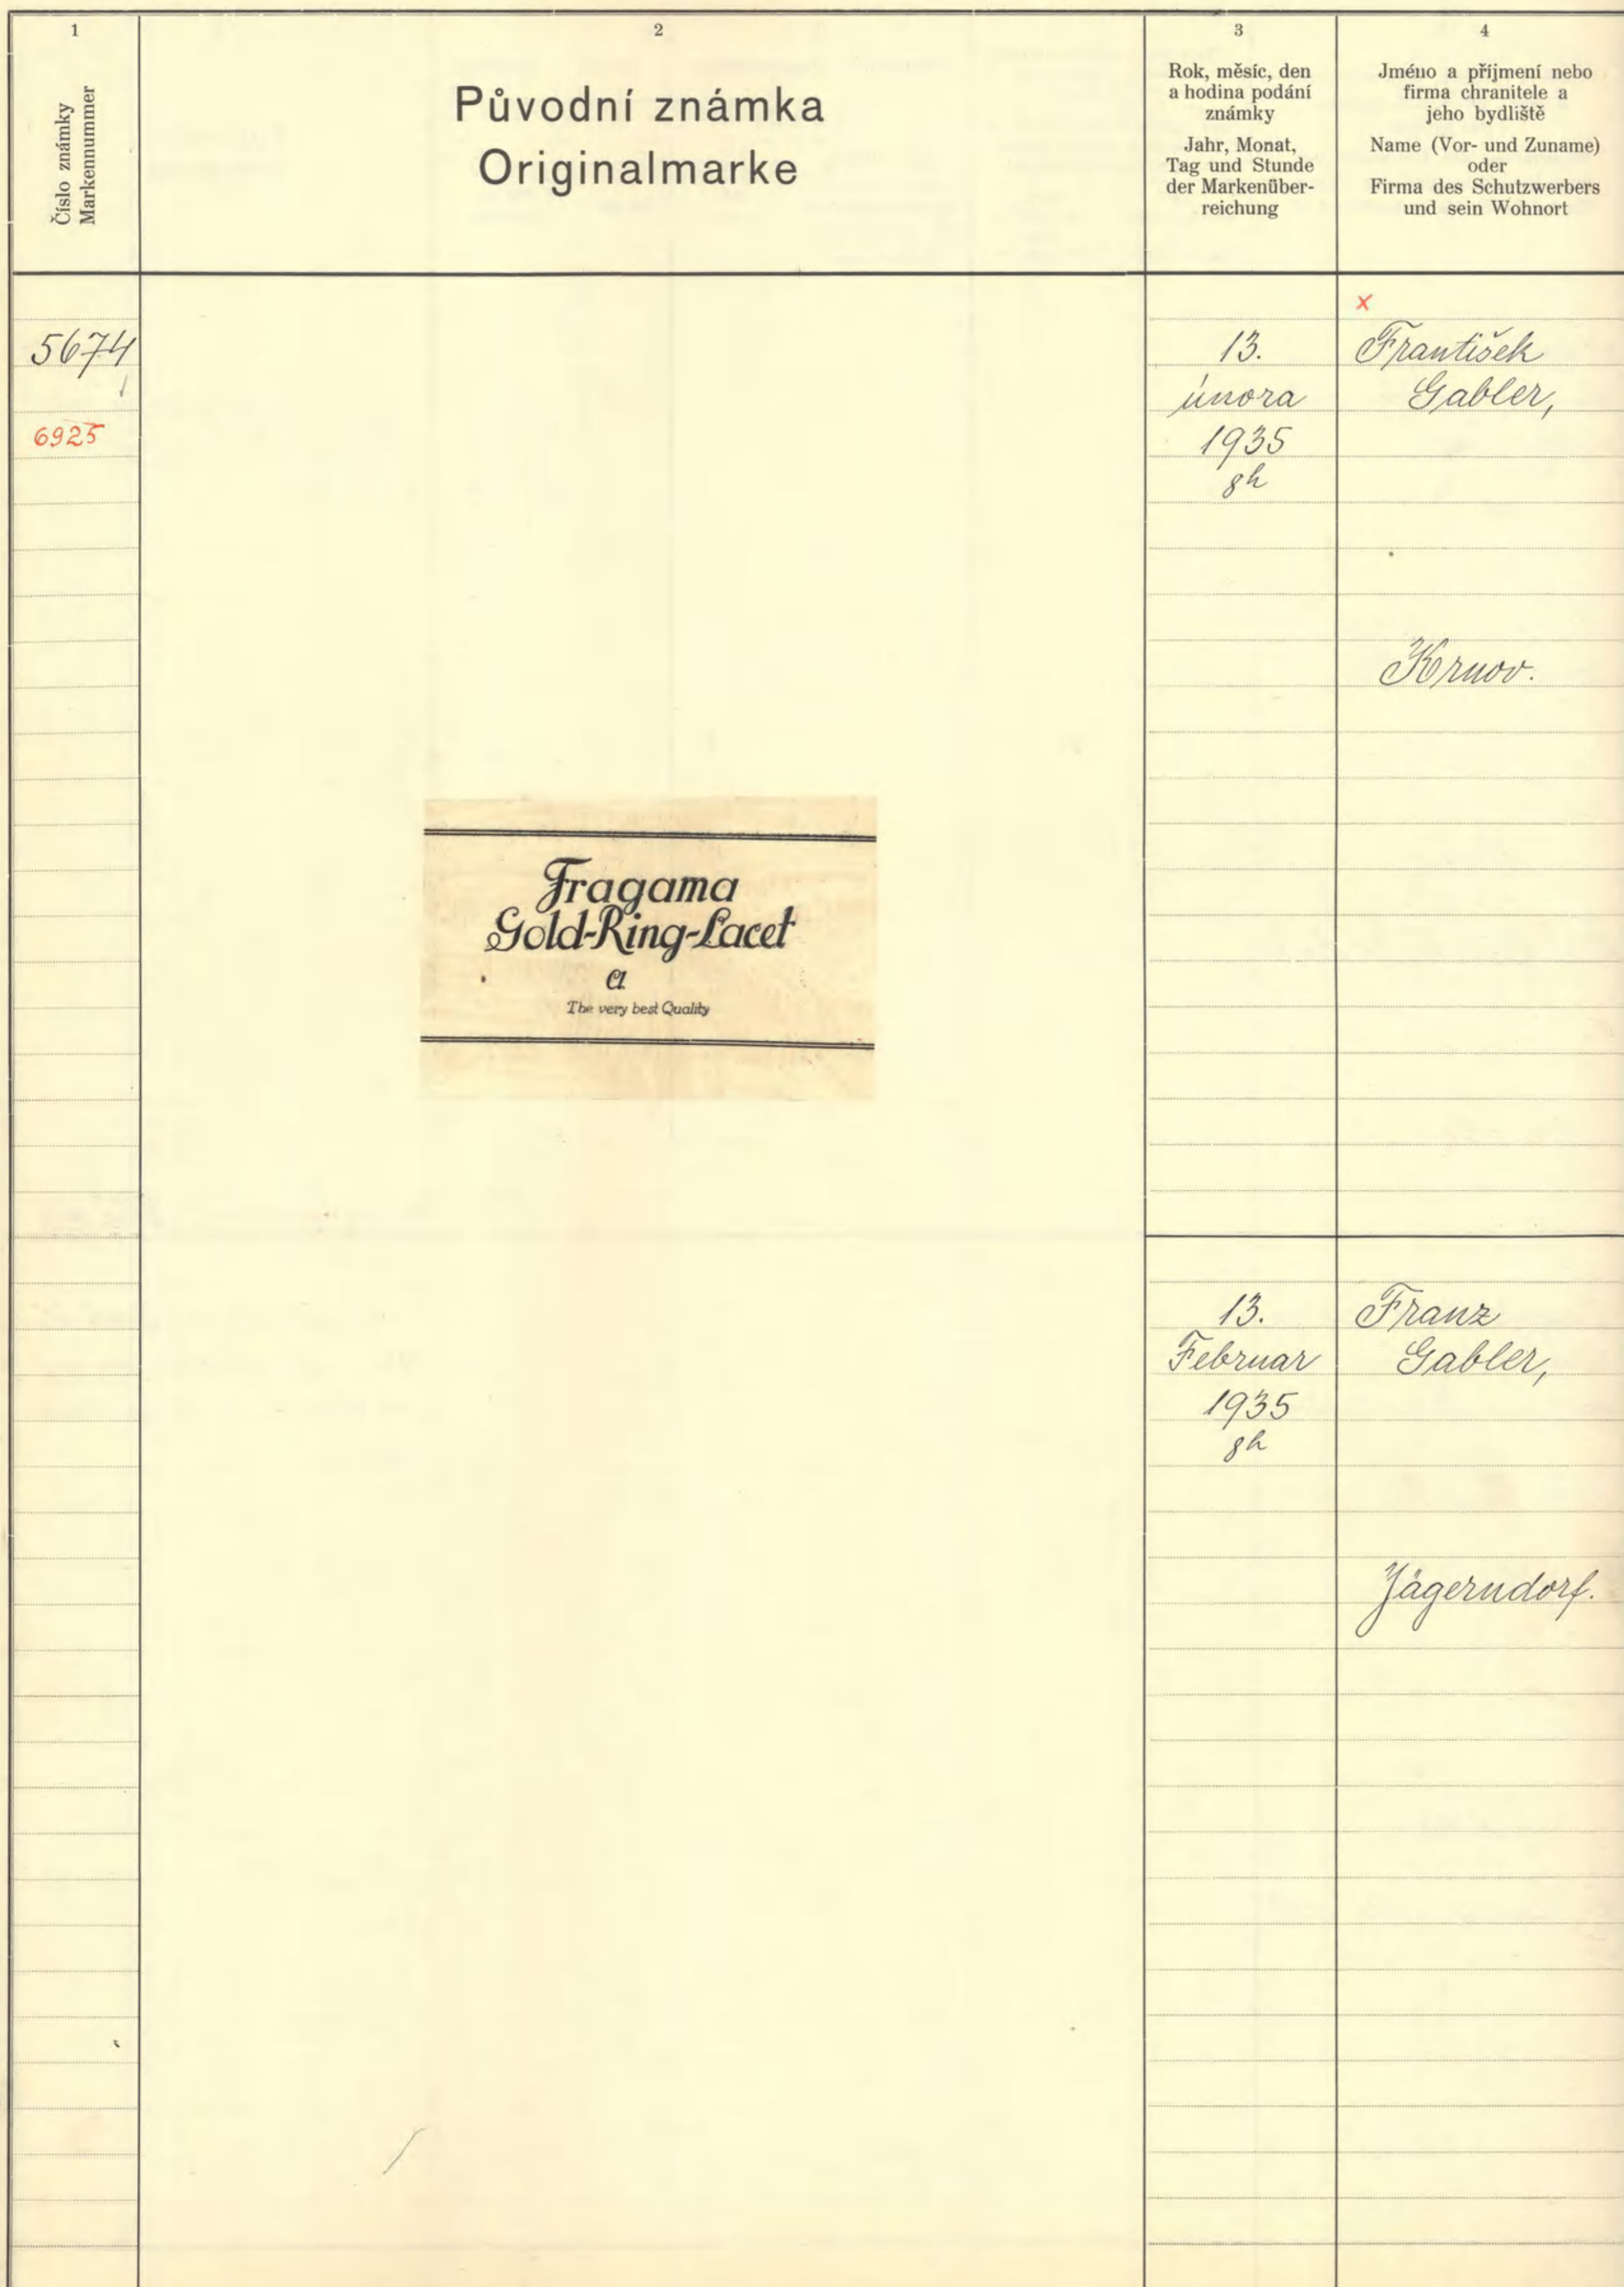 1
Číslo známky
Markennummer
2
Původní známka
Originalmarke
3
Rok, měsíc, den
a hodina podání
známky
Jahr, Monat,
Tag und Stunde
der Markenüber-
reichung
4
Jméno a příjmení nebo
firma chranitele a
jeho bydliště
Name (Vor- und Zuname)
oder
Firma des Schutzwerbers
und sein Wohnort
5674
6925
Fragama
Gold-Ring-Lacet
a
The very best Quality
13.
února
1935
8h
x
František
Gabler,
Krnov.
13.
Februar
1935
8h
Franz
Gabler,
Jägerndorf.